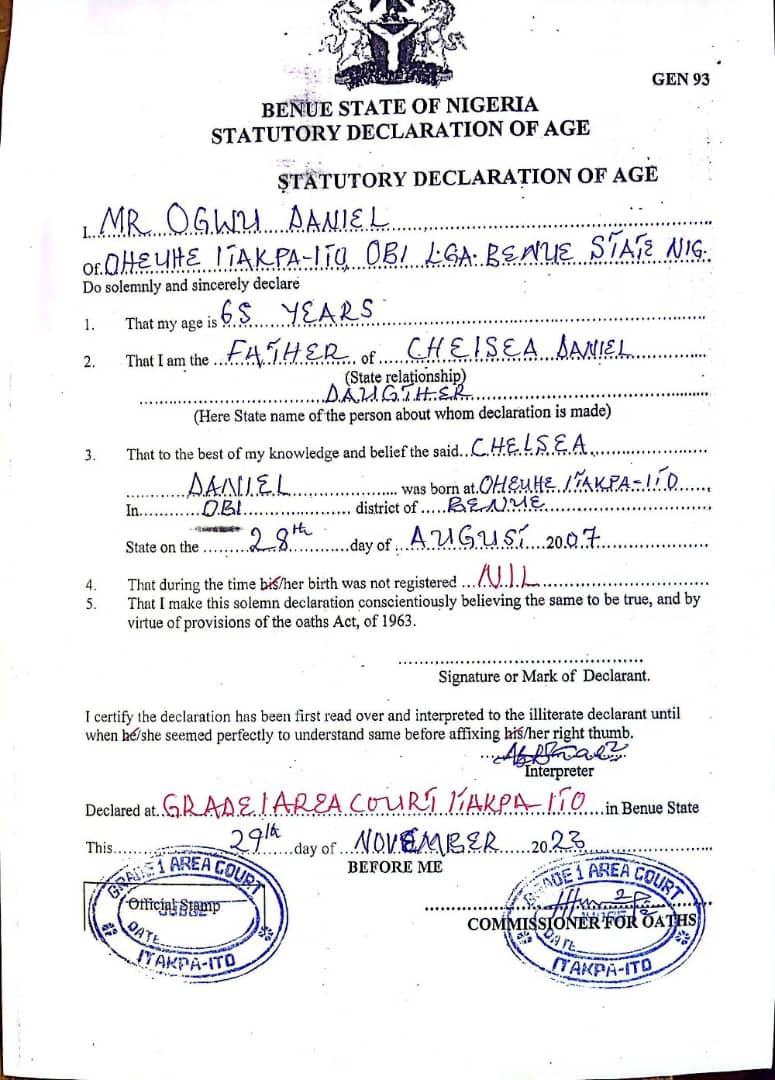 GEN 93
BENUE STATE OF NIGERIA
STATUTORY DECLARATION OF AGE
STATUTORY DECLARATION OF AGE
I. MR OGWU DANIEL
Of. OHEUHE ITAKPA-ITO, OBI LGA. BENUE STATE NIG.
Do solemnly and sincerely declare
1. That my age is 65 YEARS
2. That I am the FATHER of CHELSEA DANIEL
(State relationship)
DAUGTHER
(Here State name of the person about whom declaration is made)
3. That to the best of my knowledge and belief the said CHELSEA
DANIEL was born at OHEUHE ITAKPA-ITO
In OBI district of BENUE
State on the 28th day of AUGUST 2007
4. That during the time his/her birth was not registered NIL
5. That I make this solemn declaration conscientiously believing the same to be true, and by
virtue of provisions of the oaths Act, of 1963.
Signature or Mark of Declarant.
I certify the declaration has been first read over and interpreted to the illiterate declarant until
when he/she seemed perfectly to understand same before affixing his/her right thumb.
Interpreter
Declared at GRADE 1 AREA COURT ITAKPA-ITO in Benue State
This 29th day of NOVEMBER 2023
BEFORE ME
GRADE 1 AREA COURT
Official Stamp
DATE
ITAKPA-ITO
GRADE 1 AREA COURT
COMMISSIONER FOR OATHS
DATE
ITAKPA-ITO